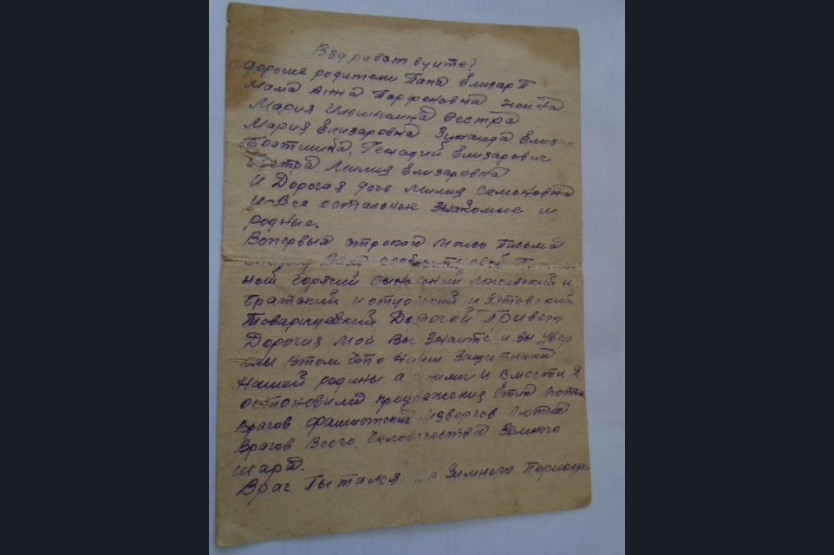 Вздравствуите?
дорогие родители Папа Елизар
Мама Анна Парфеновна жена
Мария Ильинична Сестра
Мария Елизаровна Зинаида
Братишка, Генадий Елизарович
Сестра Лилия Елизаровна
И Дорогая доч Лилия Семеновна
И Все остальные знакомые и
родные.
Вопервых строках моего письма
Вам сообщить свой
ной горячий сыновний и
Братский и отцовский и
Товарищевский Дорогой Привет
Дорогия Мои Вы знаите и
в том что наши защитники
нашей родины а сними и вместе я
остоновили продвежения этих
врагов фашистских извергов лютых
врагов Всего, Человечества Земного
шара.
Враг Пытался до Зимнего Периода